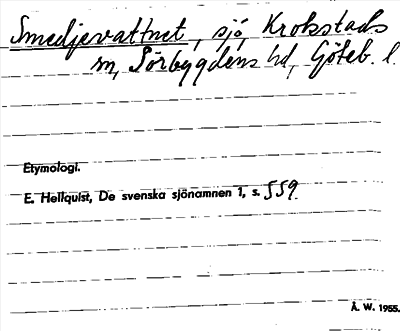 Smedjevattnet, sjö, Krokstads
sn, Sörbygdens hd, Göteb. l.
Etymologi.
E. Hellquist, De svenska sjönamnen 1, s. 559.
Å. W. 1955.